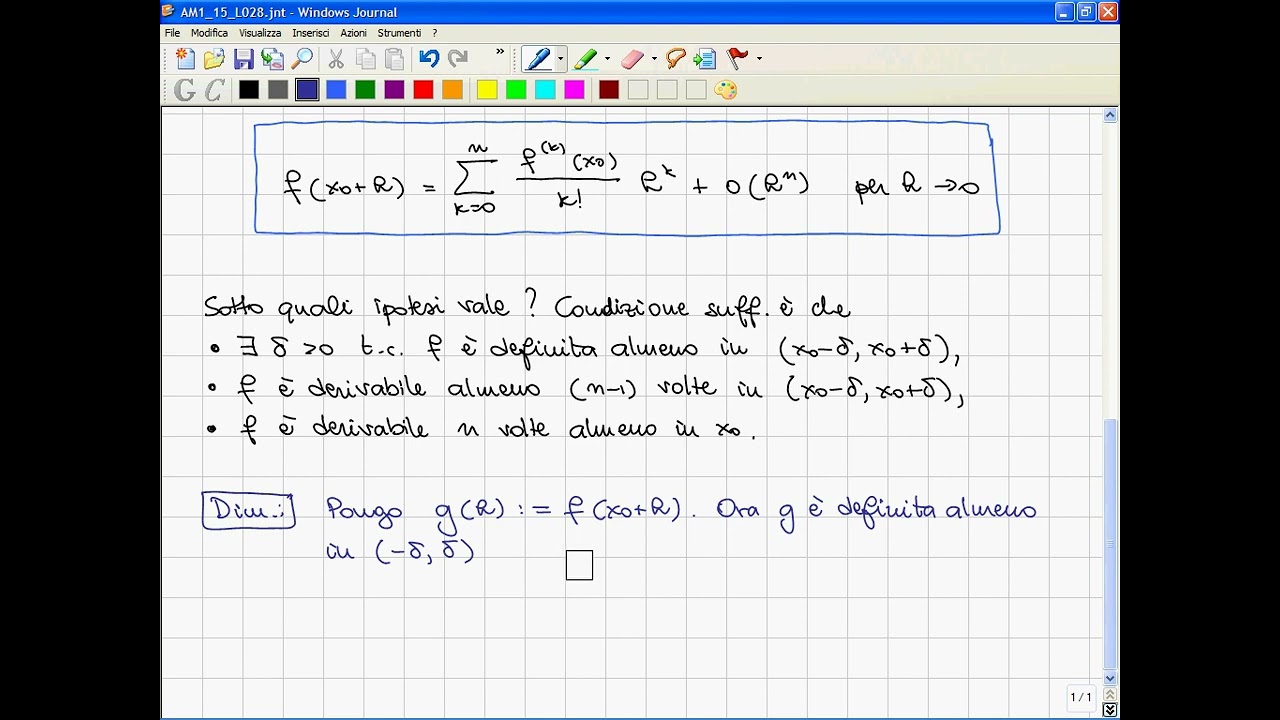 AM1_15_L028.jnt - Windows Journal
File Modifica Visualizza Inserisci Azioni Strumenti ?
G C
f(x0+h) = ∑_{k=0}^{n} f^(k)(x0)/k! h^k + o(h^n) per h → 0
Sotto quali ipotesi vale? Condizione suff. è che
• ∃ δ > 0 t.c. f è definita almeno in (x0-δ, x0+δ),
• f è derivabile almeno (n-1) volte in (x0-δ, x0+δ),
• f è derivabile n volte almeno in x0.
Dim.: Pongo g(h) := f(x0+h). Ora g è definita almeno
in (-δ, δ)
1 / 1